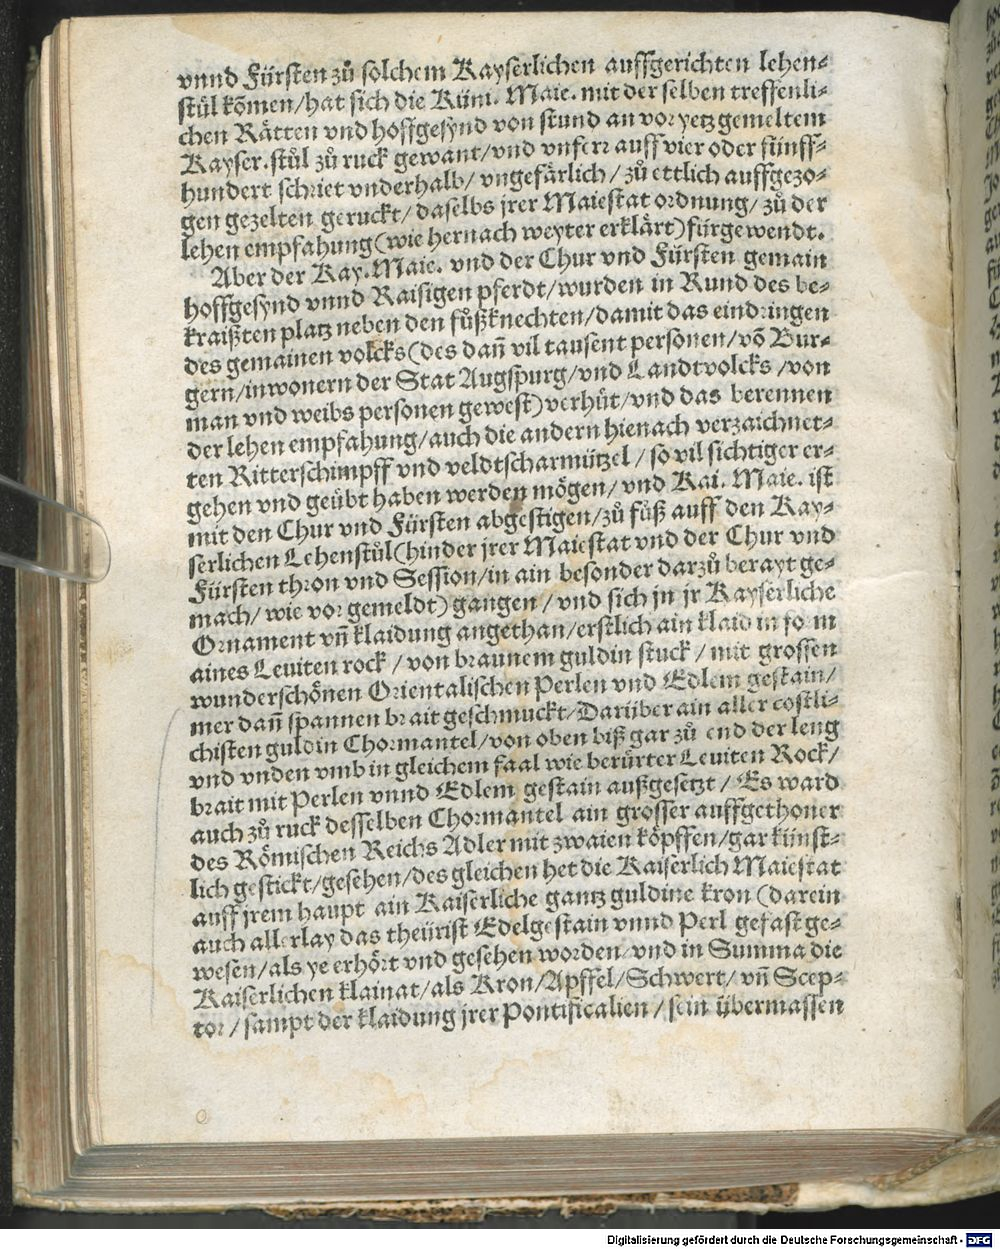 vnnd Fürsten zů solchem Kayserlichen auffgerichten lehen⸗
stůl kom̃en/hat sich die Küni. Maie. mit der selben treffenli⸗
chen Rätten vnd hoffgesynd von stund an vor yetz gemeltem
Kayser.stůl zů ruck gewant/vnd vnferr auff vier oder fünff⸗
hundert schriet vnderhalb/ vngefärlich/ zů ettlich auffgezo⸗
gen gezelten geruckt/ daselbs jrer Maiestat ordnung/ zů der
lehen empfahung(wie hernach weyter erklärt)fürgewendt.
Aber der Kay.Maie. vnd der Chur vnd Fürsten gemain
hoffgesynd vnnd Raisigen pferdt/wurden in Rund des be⸗
kraißten platz neben den fůßknechten/damit das eindringen
des gemainen volcks(des dañ vil tausent personen/võ Bur⸗
gern/inwonern der Stat Augspurg/vnd Landtvolcks/von
man vnd weibs personen gewest)verhüt/vnd das berennen
der lehen empfahung/auch die andern hienach verzaichnet⸗
ten Ritterschimpff vnd veldtscharmützel/ so vil sichtiger er⸗
gehen vnd geübt haben werden mögen/ vnd Kai. Maie. ist
mit den Chur vnd Fürsten abgestigen/zů fůß auff den Kay⸗
serlichen Lehenstůl(hinder jrer Maiestat vnd der Chur vnd
Fürsten thron vnd Session/in ain besonder darzů berayt ge⸗
mach/ wie vor gemeldt)gangen/ vnd sich jn jr Kayserliche
Ornament vñ klaidung angethan/erstlich ain klaid in form
aines Leuiten rock/ von braunem guldin stuck/ mit grossen
wunderschönen Orientalischen Perlen vnd Edlem gestain/
mer dañ spannen brait geschmuckt/Darüber ain aller costli⸗
chisten guldin Chormantel/von oben biß gar zů end der leng
vnd vnden vmb in gleichem faal wie berürter Leuiten Rock/
brait mit Perlen vnnd Edlem gestain außgesetzt/ Es ward
auch zů ruck desselben Chormantel ain grosser auffgethoner
des Römischen Reichs Adler mit zwaien köpffen/gar künst⸗
lich gestickt/gesehen/des gleichen het die Kaiserlich Maiestat
auff jrem haupt ain Kaiserliche gantz guldine kron(darein
auch allerlay das theürist Edelgestain vnnd Perl gefast ge⸗
wesen/als ye erhört vnd gesehen worden/vnd in Summa die
Kaiserlichen klainat/als Kron/Apffel/Schwert/ vñ Scep⸗
tor/ sampt der klaidung jrer Pontificalien/ sein übermassen
Digitalisierung gefördert durch die Deutsche Forschungsgemeinschaft - DFG